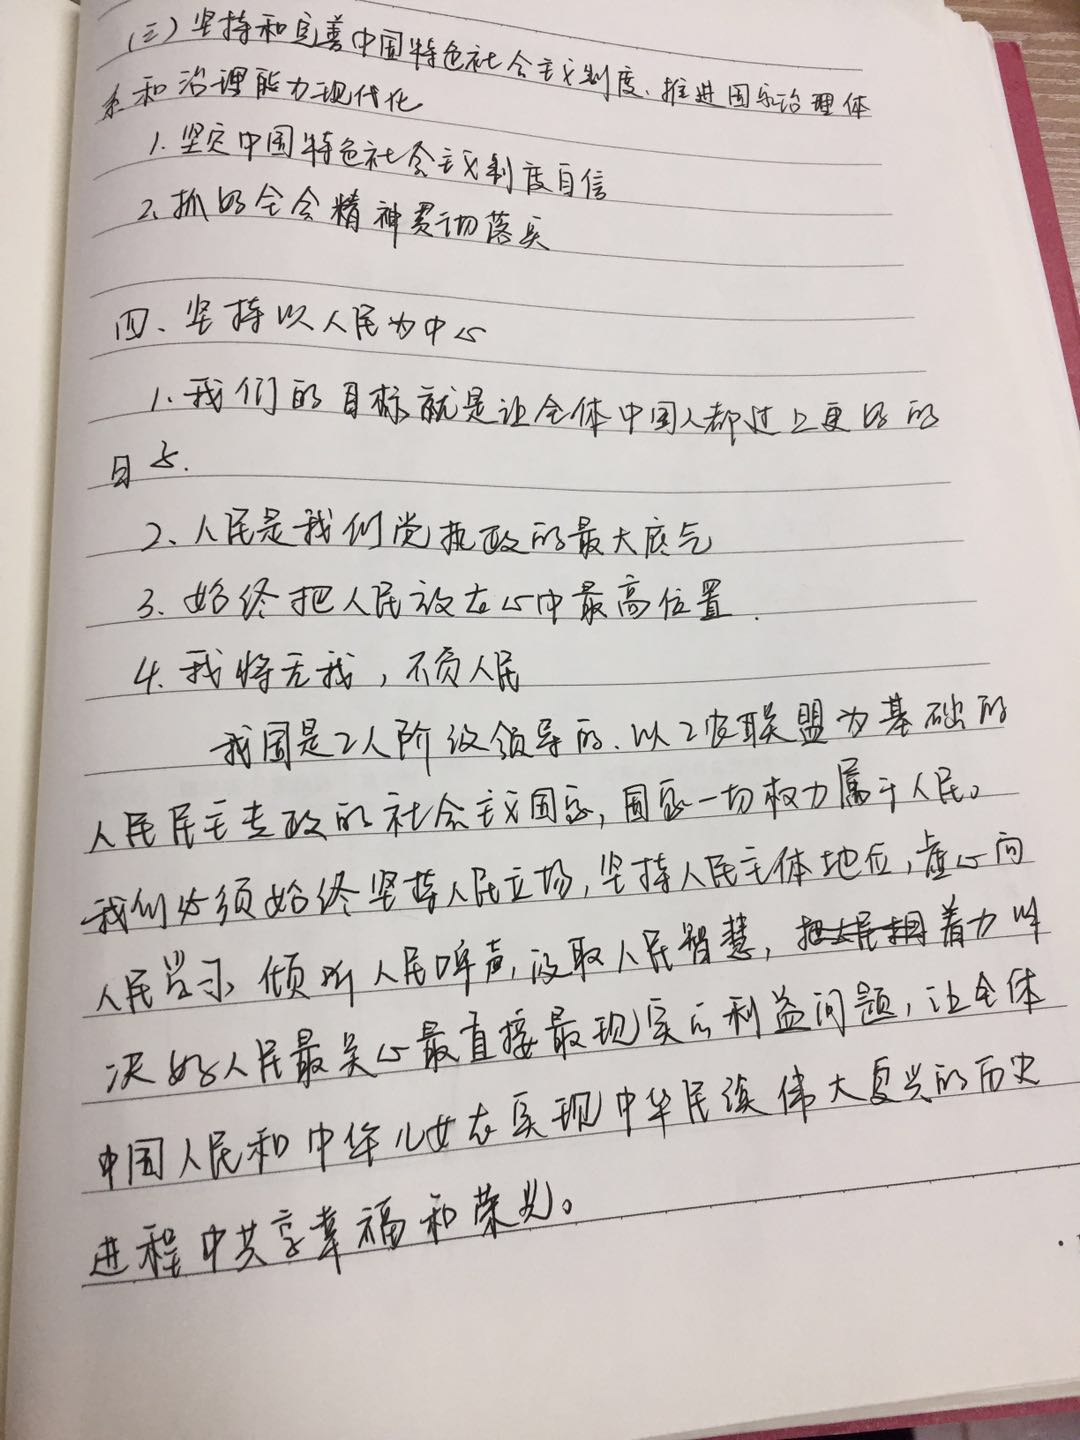 (三)坚持和完善中国特色社会主义制度、推进国家治理体
系和治理能力现代化
1. 坚定中国特色社会主义制度自信
2、抓好全会精神贯彻落实
四、坚持以人民为中心
1. 我们的目标就是让全体中国人都过上更好的
日子.
2、人民是我们党执政的最大底气
3. 始终把人民放在心中最高位置.
4. 我将无我，不负人民
我国是工人阶级领导的、以工农联盟为基础的
人民民主专政的社会主义国家，国家一切权力属于人民。
我们必须始终坚持人民立场，坚持人民主体地位，虚心向
人民学习、倾听人民呼声，汲取人民智慧，着力解
决好人民最关心最直接最现实的利益问题，让全体
中国人民和中华儿女在实现中华民族伟大复兴的历史
进程中共享幸福和荣光。